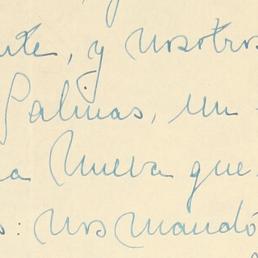 nte, y nosotros
Palmas, un
a nueva que
s: nos mandó